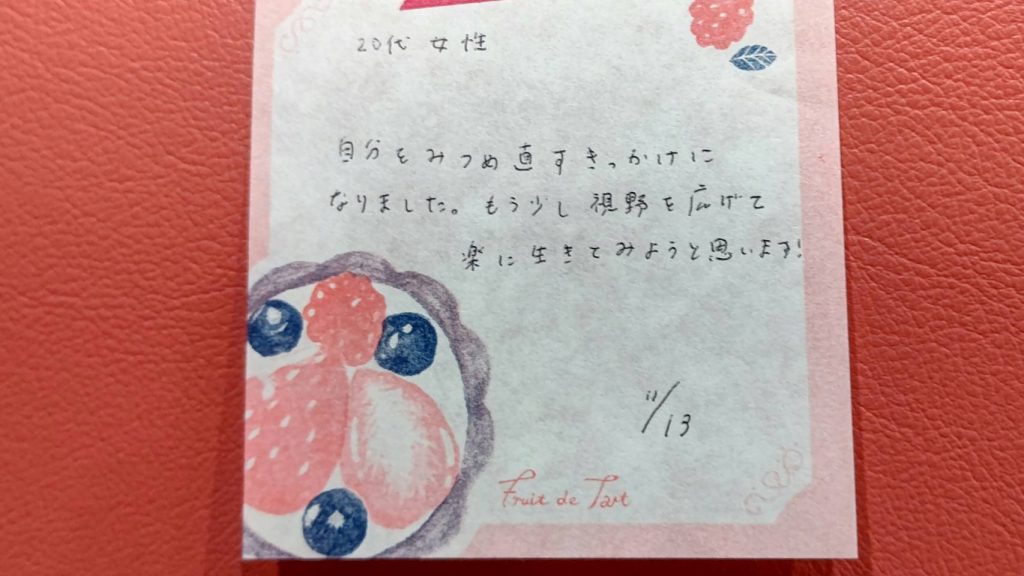 20代 女性
自分をみつめ直すきっかけに
なりました。もう少し視野を広げて
楽に生きてみようと思います!
11/13
Fruit de Tart